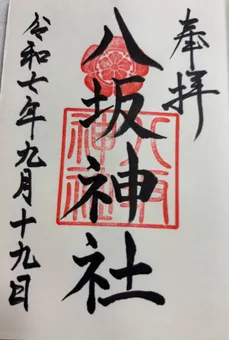 奉拝
八坂神社
八坂神社
令和七年九月十九日